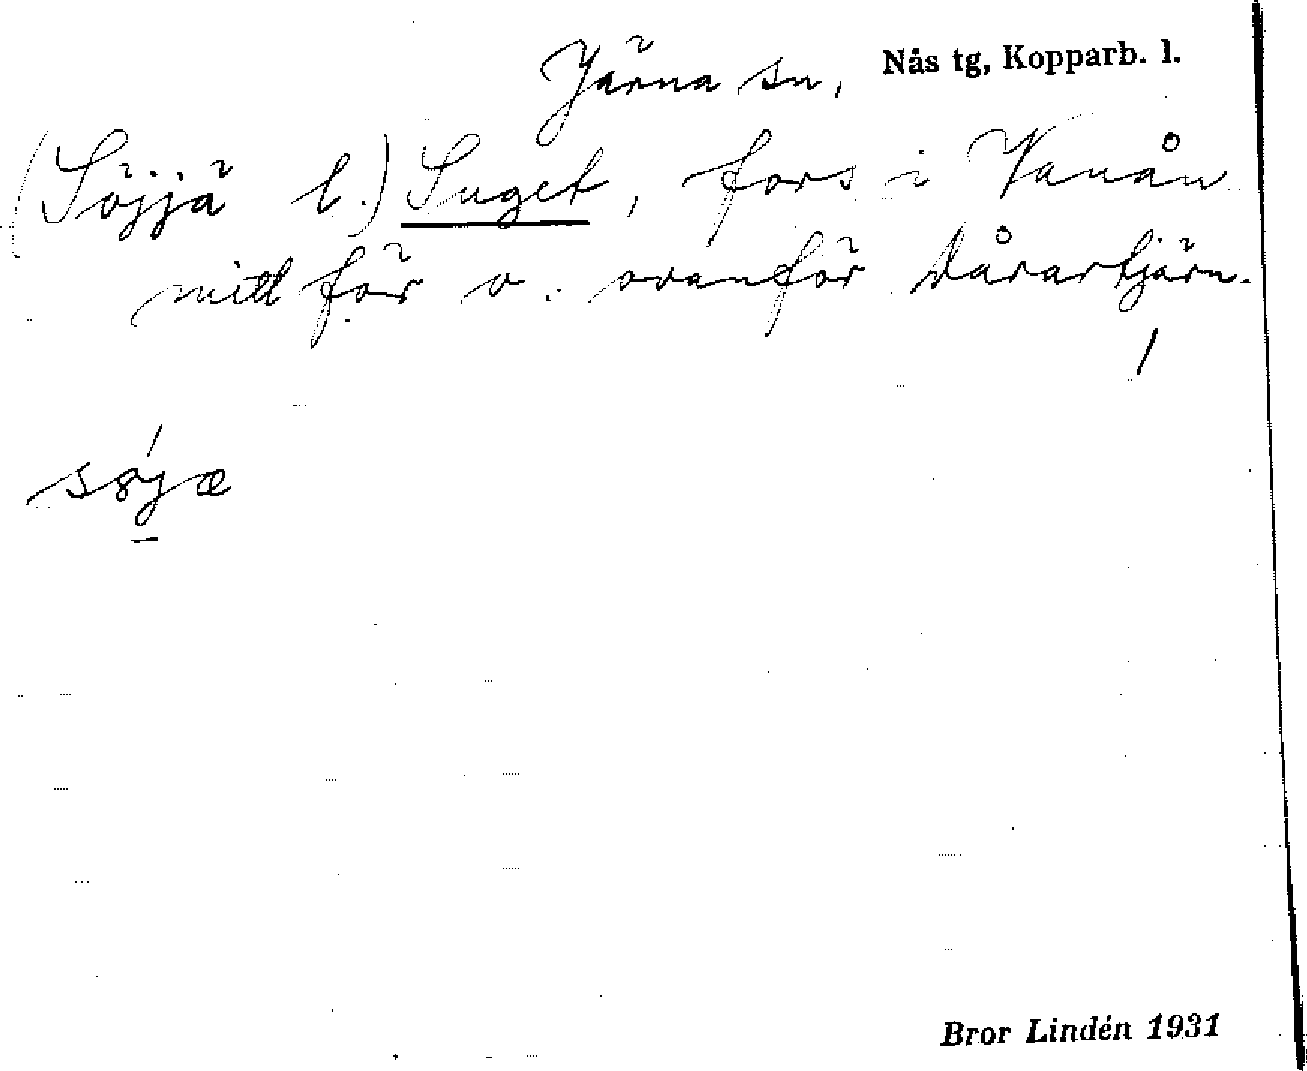 Järna sn, Nås tg, Kopparb. l.
(Söjjä l.) Suget, fors i Vanån
mitt för o. ovanför Dårartjärn.
/
søjæ
Bror Lindén 1931